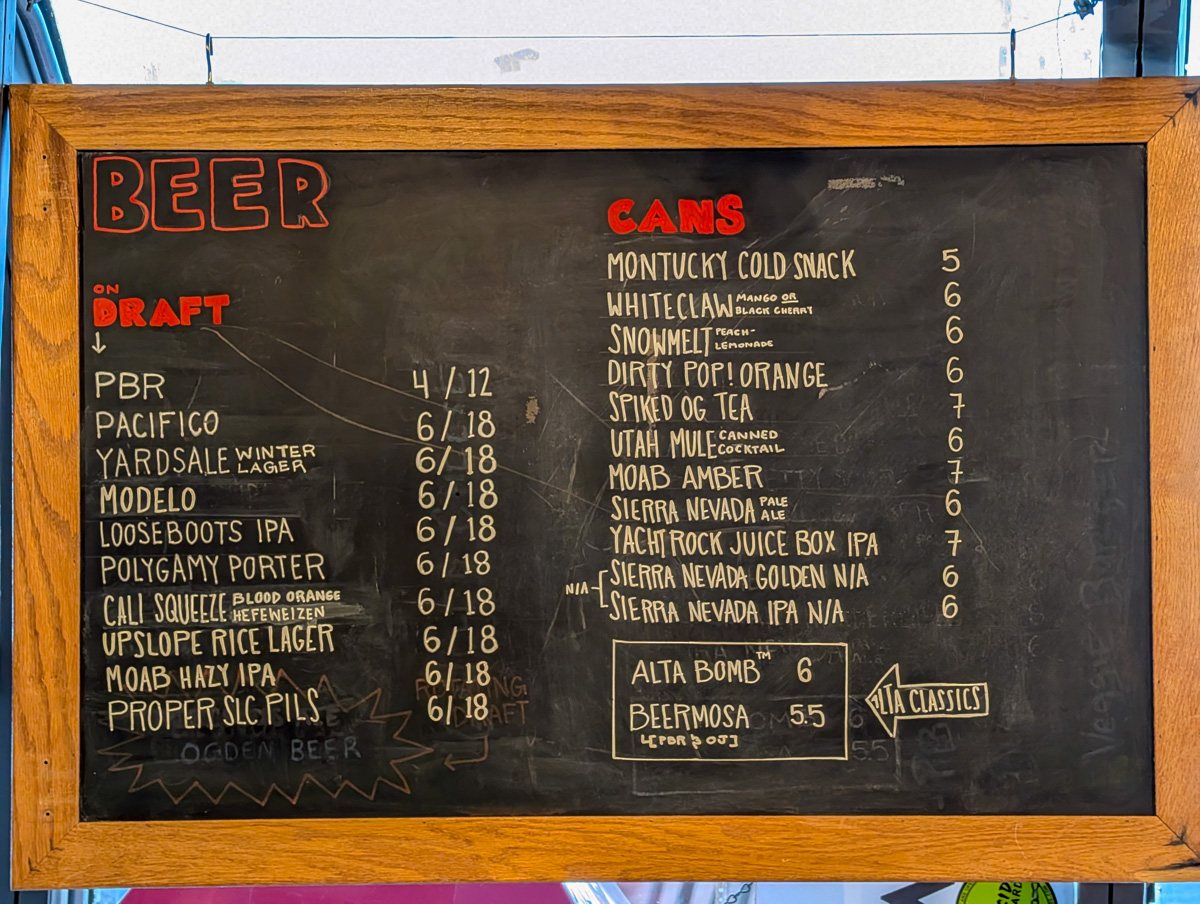 BEER
ON
DRAFT
PBR 4 / 12
PACIFICO 6 / 18
YARDSALE WINTER LAGER 6 / 18
MODELO 6 / 18
LOOSEBOOTS IPA 6 / 18
POLYGAMY PORTER 6 / 18
CALI SQUEEZE BLOOD ORANGE HEFEWEIZEN 6 / 18
UPSLOPE RICE LAGER 6 / 18
MOAB HAZY IPA 6 / 18
PROPER SLC PILS 6 / 18
OGDEN BEER
DRAFT
CANS
MONTUCKY COLD SNACK 5
WHITECLAW MANGO OR BLACK CHERRY 6
SNOWMELT PEACH-LEMONADE 6
DIRTY POP! ORANGE 6
SPIKED OG TEA 7
UTAH MULE CANNED COCKTAIL 6
MOAB AMBER 7
SIERRA NEVADA PALE ALE 6
YACHTROCK JUICE BOX IPA 7
N/A
SIERRA NEVADA GOLDEN N/A 6
SIERRA NEVADA IPA N/A 6
ALTA BOMB™ 6
BEERMOSA 5.5
[PBR & OJ]
ALTA CLASSICS
5.5